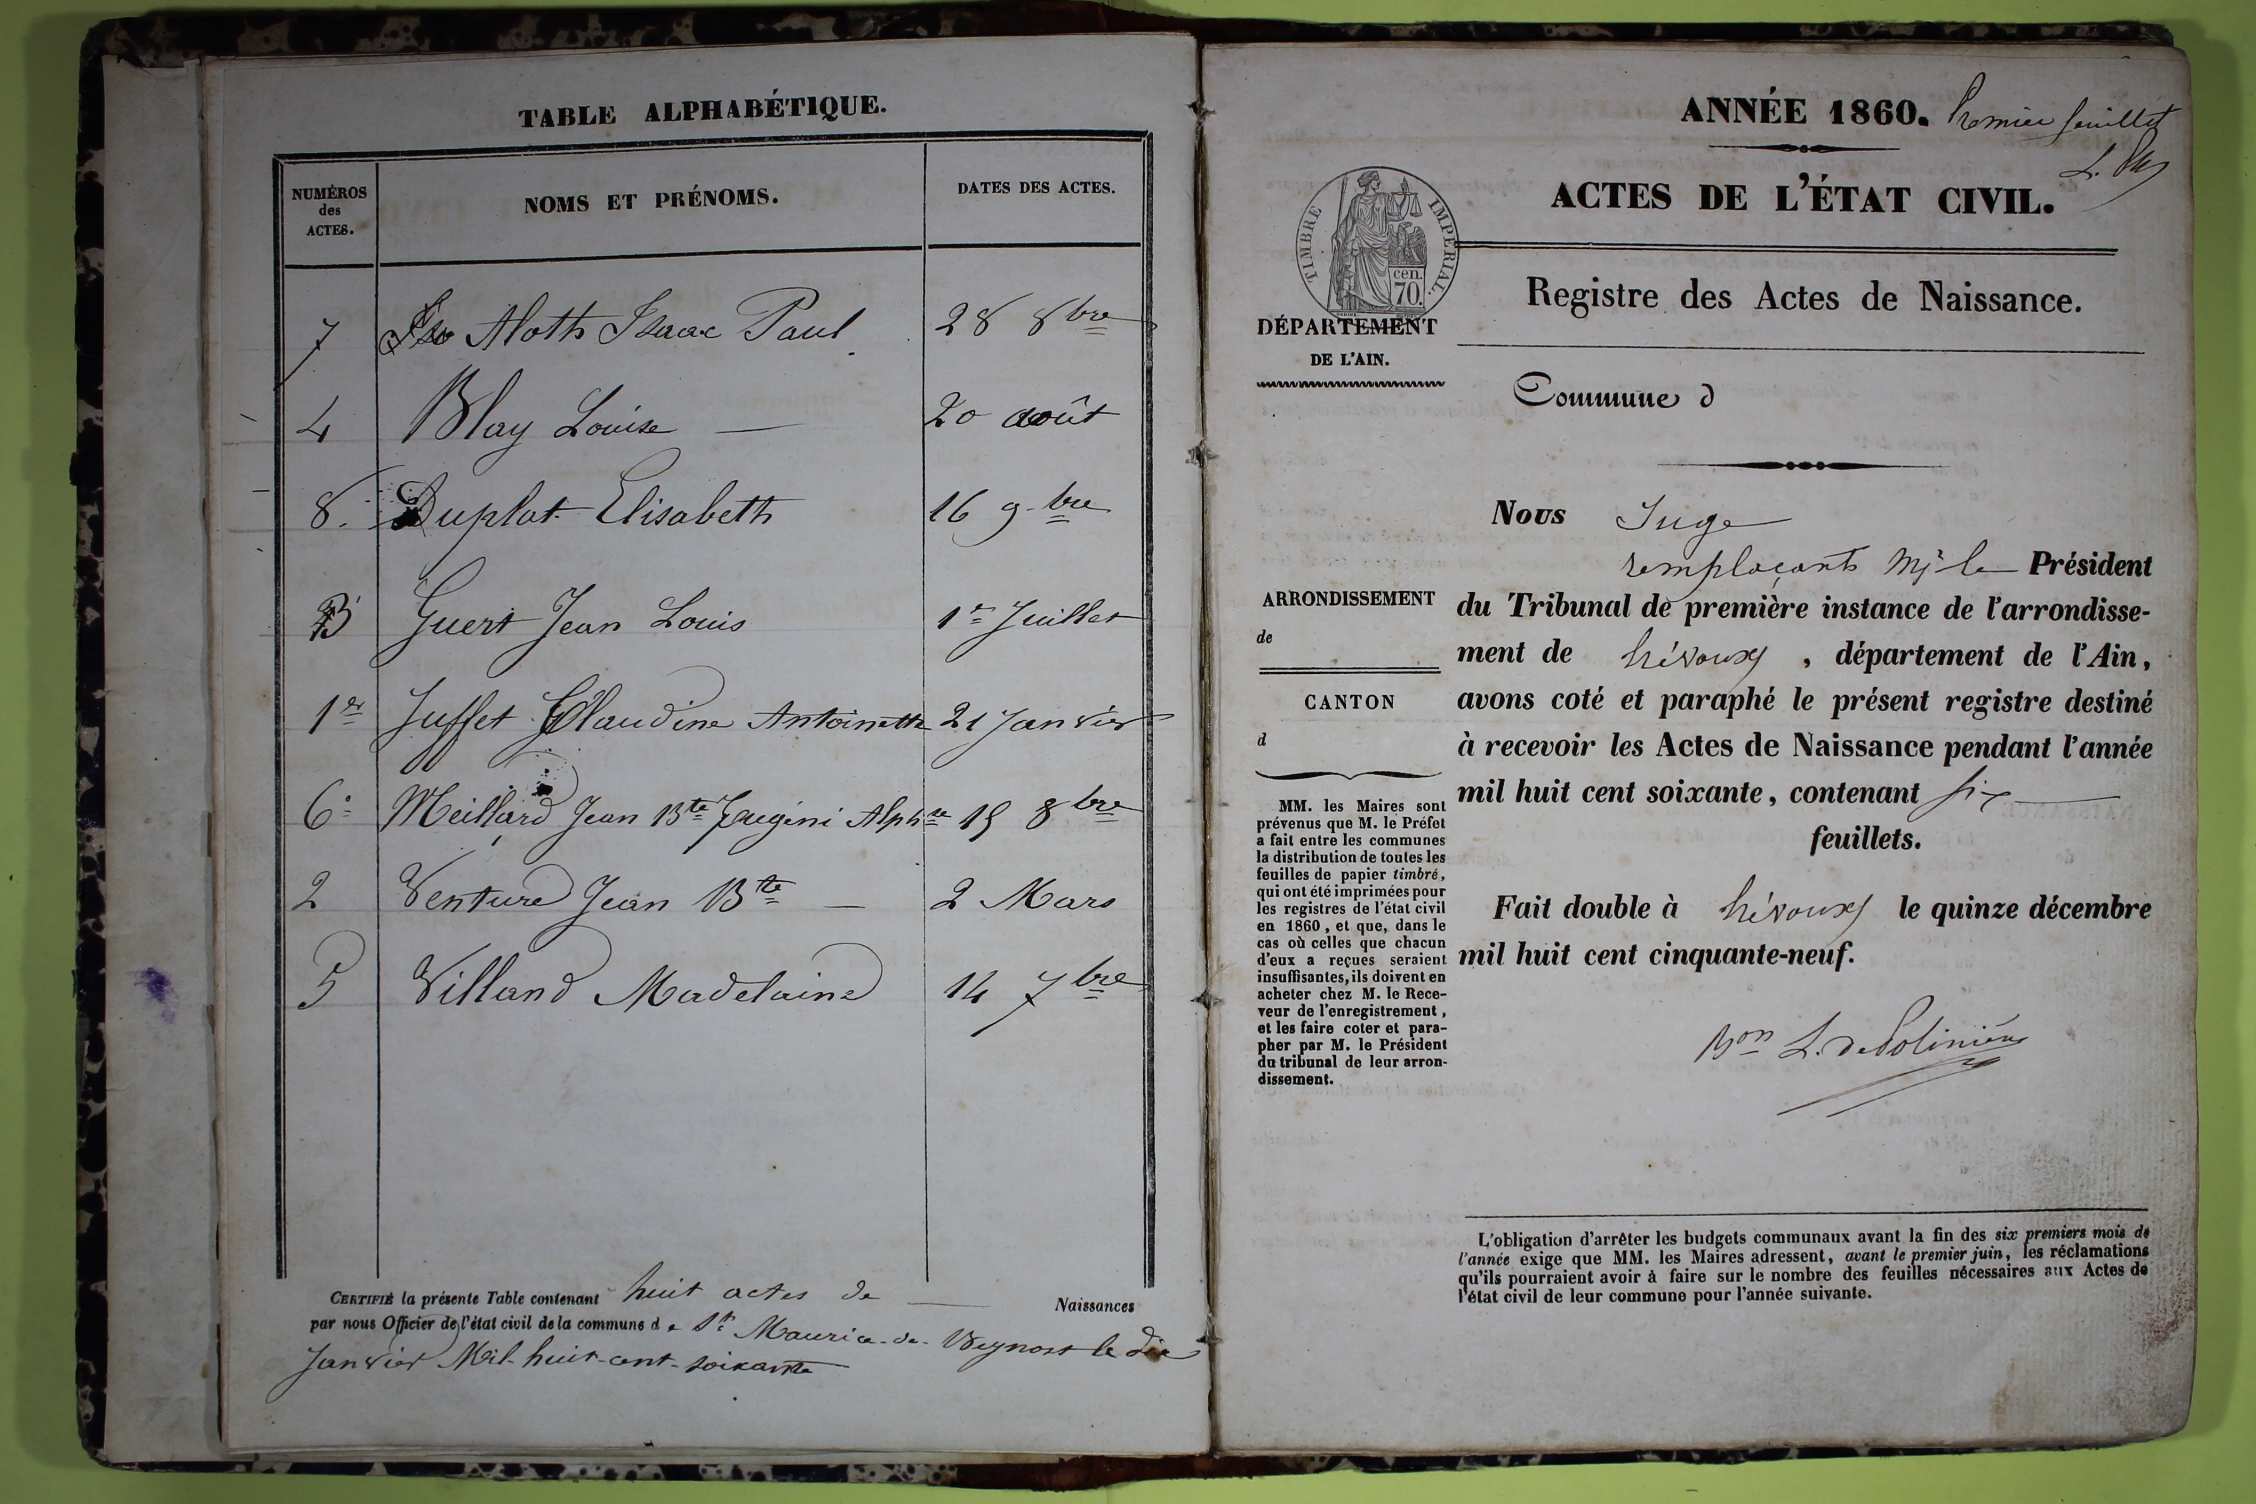 TABLE ALPHABÉTIQUE.
NUMÉROS des ACTES.
NOMS ET PRÉNOMS.
DATES DES ACTES.
7 Aloth Isaac Paul 28 8bre
4 Blay Louise — 20 août
8. Duplat Elisabeth 16 9bre
3 Guert Jean Louis 1er Juillet
1er Juffet Claudine Antoinette 21 Janvier
6 Meillard Jean Bte Eugéni Alphse 15 8bre
2 Venture Jean Bte — 2 Mars
5 Villand Madelaine 14 7bre
CERTIFIÉ la présente Table contenant huit actes de — Naissances
par nous Officier de l'état civil de la commune de St Maurice-de-Beynost le dix
Janvier Mil-huit-cent-soixante
ANNÉE 1860. Premier feuillet
ACTES DE L'ÉTAT CIVIL.
TIMBRE IMPÉRIAL.
cen.
70.
Registre des Actes de Naissance.
DÉPARTEMENT
DE L'AIN.
Commune d
Nous Juge
remplaçant Mr le Président
du Tribunal de première instance de l'arrondisse-
ment de Trévoux, département de l'Ain,
avons coté et paraphé le présent registre destiné
à recevoir les Actes de Naissance pendant l'année
mil huit cent soixante, contenant six
feuillets.
Fait double à Trévoux le quinze décembre
mil huit cent cinquante-neuf.
Bon L. de Polinière
ARRONDISSEMENT
de
CANTON
d
MM. les Maires sont
prévenus que M. le Préfet
a fait entre les communes
la distribution de toutes les
feuilles de papier timbré,
qui ont été imprimées pour
les registres de l'état civil
en 1860, et que, dans le
cas où celles que chacun
d'eux a reçues seraient
insuffisantes, ils doivent en
acheter chez M. le Rece-
veur de l'enregistrement,
et les faire coter et para-
pher par M. le Président
du tribunal de leur arron-
dissement.
L'obligation d'arrêter les budgets communaux avant la fin des six premiers mois de
l'année exige que MM. les Maires adressent, avant le premier juin, les réclamations
qu'ils pourraient avoir à faire sur le nombre des feuilles nécessaires aux Actes de
l'état civil de leur commune pour l'année suivante.